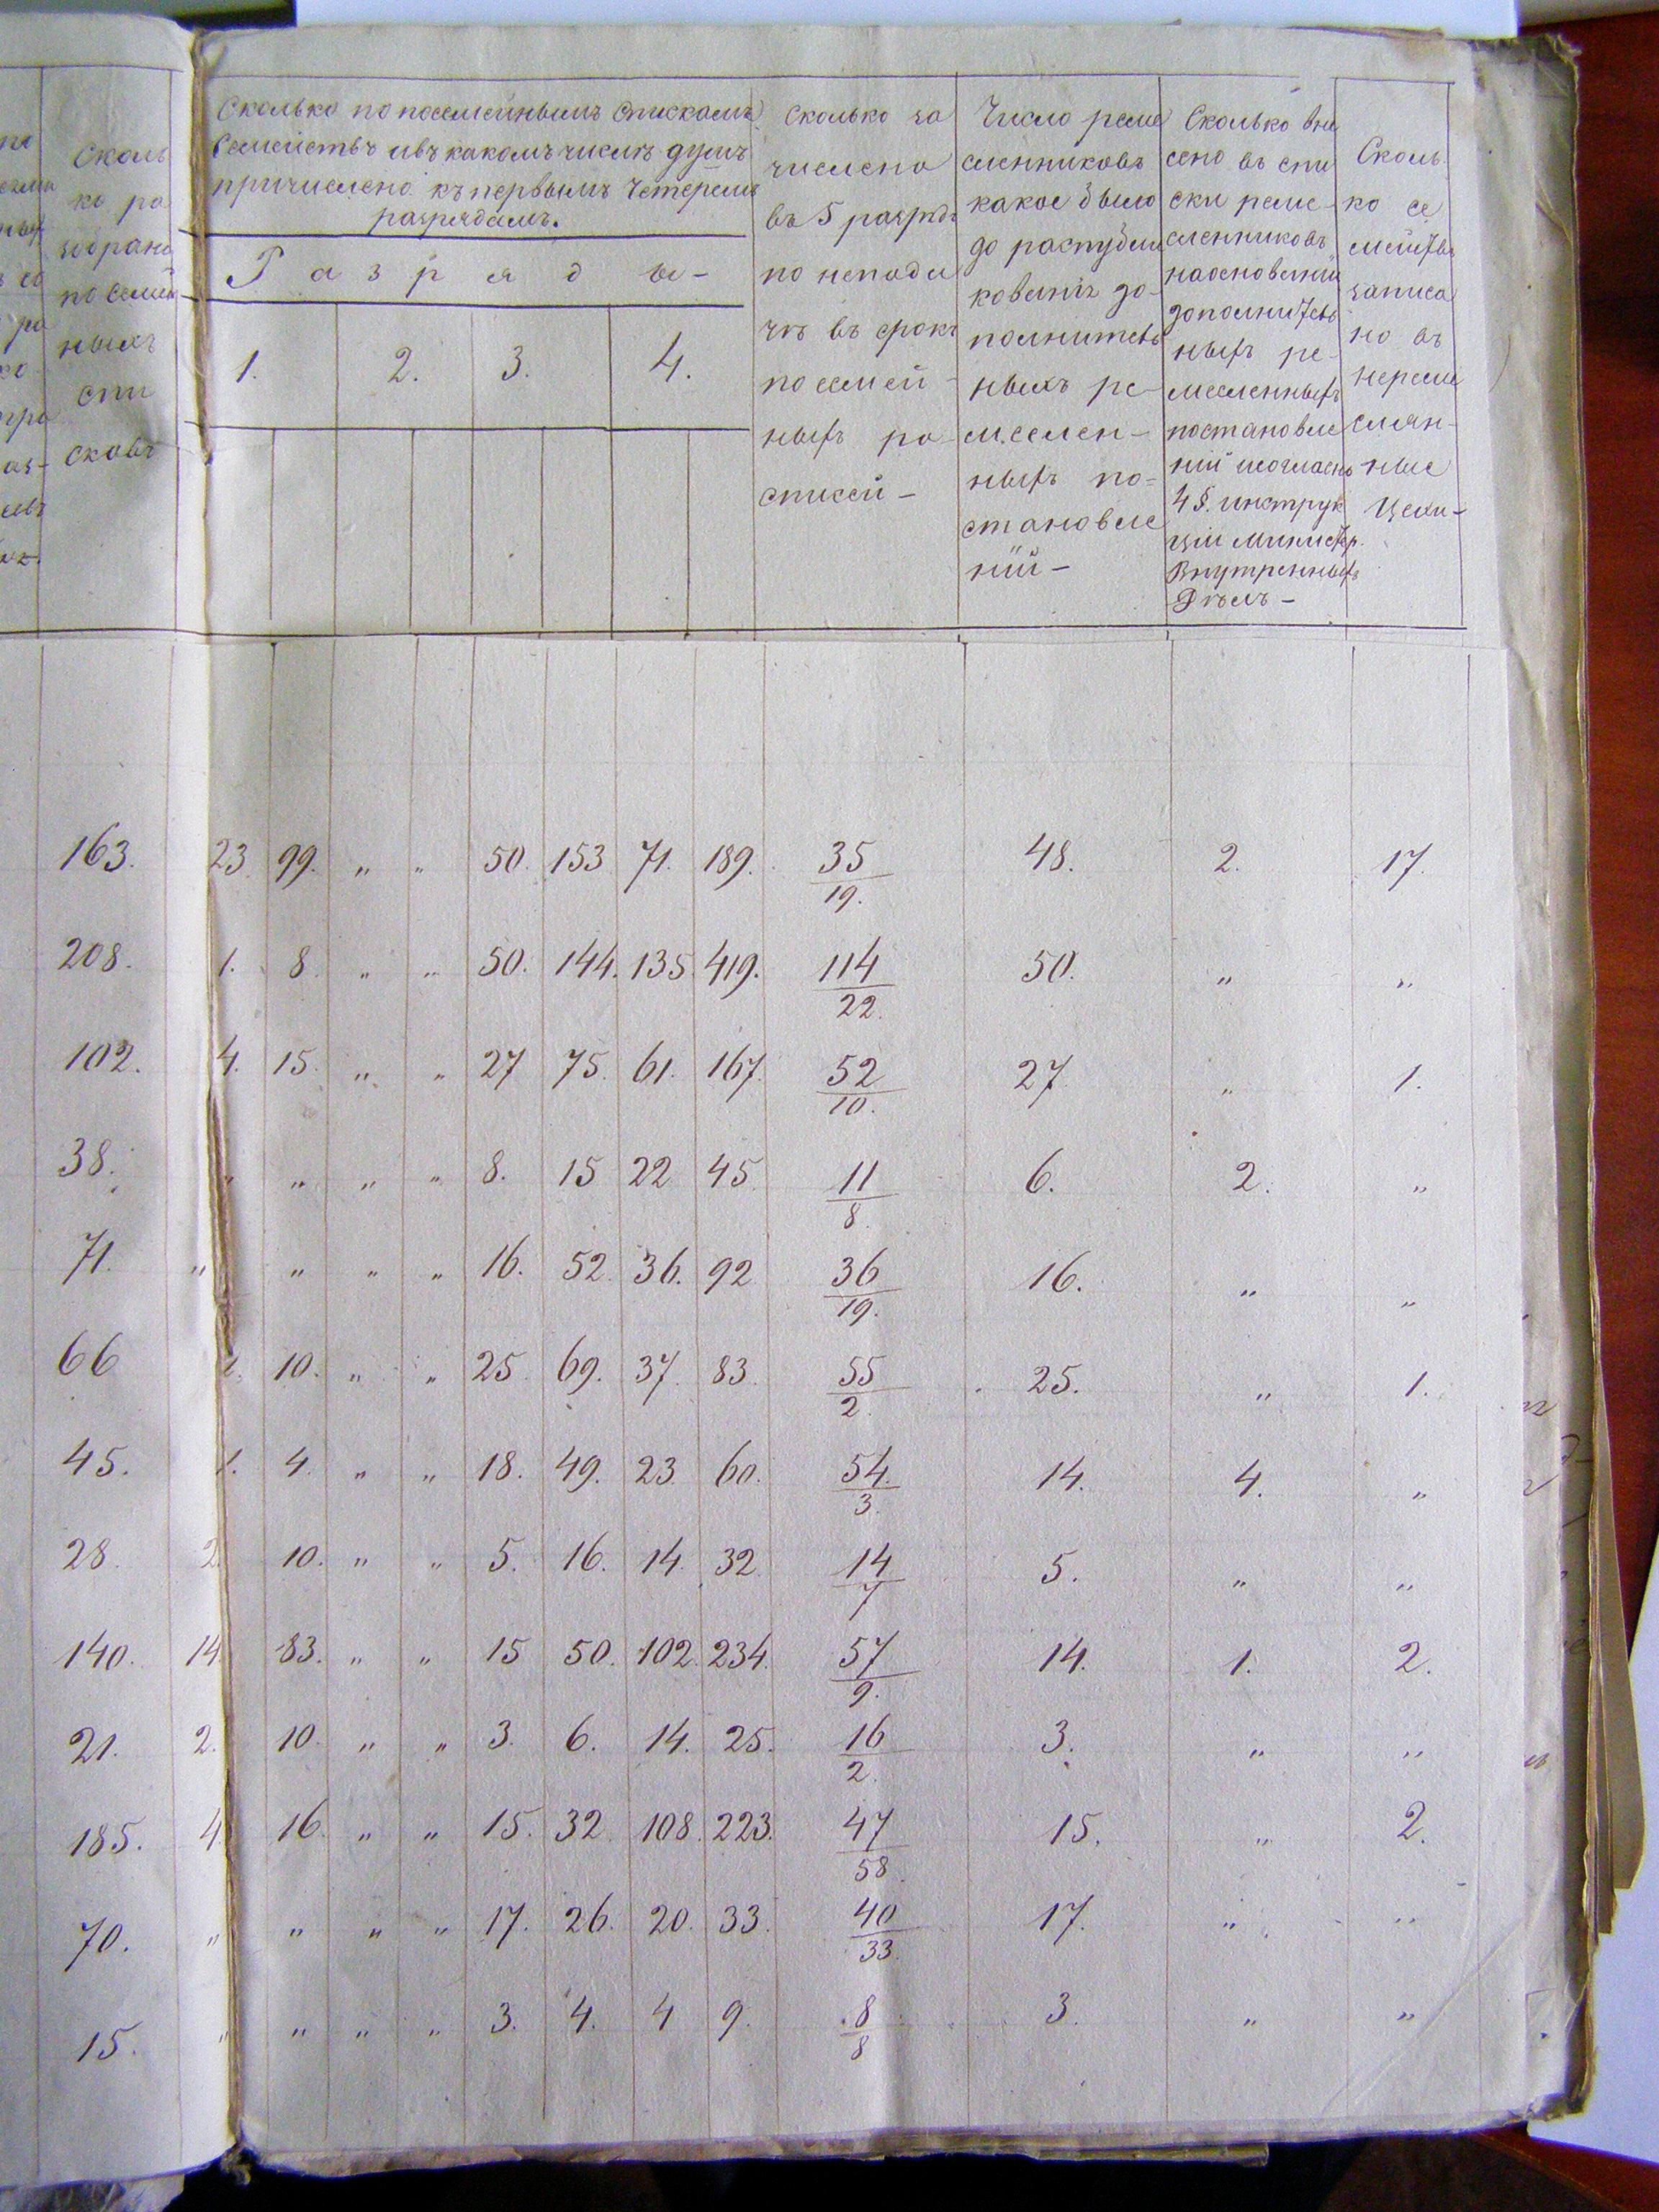 Сколь
ко ра
зобрано
посемей
ныхъ
спи
сковъ
Сколько по посемейнымъ спискамъ
семействъ и въ какомъ числѣ душъ
причислено къ первымъ четыремъ
разрядамъ.
Разряды-
1. 2. 3. 4.
Сколько за
числено
въ 5 разрядъ
по непода
чѣ въ срокъ
посемей-
ныхъ ро-
списей-
Число реме
сленниковъ
какое было
до распубли
кованія до-
полнитель
ныхъ ре-
месленн-
ныхъ по-
становле
ній-
Сколько вне
сено въ спи
ски реме-
сленниковъ
на основаніи
дополнитель
ныхъ ре-
месленныхъ
постановле
ній и согласно
4 §. инструк
ціи Министер.
Внутренныхъ
Дѣлъ-
Сколь
ко се
мействъ
записа
но въ
нереме
слен-
ные
Цехи-
163. 23. 99. „ „ 50. 153 71. 189. 35/19. 48. 2. 17.
208. 1. 8. „ „ 50. 144. 135 419. 114/22. 50. „ „
102. 4. 15. „ „ 27 75. 61. 167. 52/10. 27. „ 1.
38. „ „ „ „ 8. 15 22 45. 11/8. 6. 2. „
71. „ „ „ „ 16. 52. 36. 92 36/19. 16. „ „
66 10. „ „ 25. 69. 37. 83. 55/2. 25. „ 1.
45. 1. 4. „ „ 18. 49. 23. 60. 54./3. 14. 4. „
28. 2. 10. „ „ 5. 16. 14. 32. 14/7 5. „ „
140. 14. 83. „ „ 15 50. 102. 234. 57/9. 14. 1. 2.
21. 2. 10. „ „ 3. 6. 14. 25. 16/2. 3. „ „
185. 4. 16. „ „ 15. 32. 108. 223. 47/58. 15. „ 2.
70. „ „ „ „ 17. 26. 20. 33. 40/33. 17. „ „
15. „ „ „ „ 3. 4. 4 9. 8/8 3. „ „